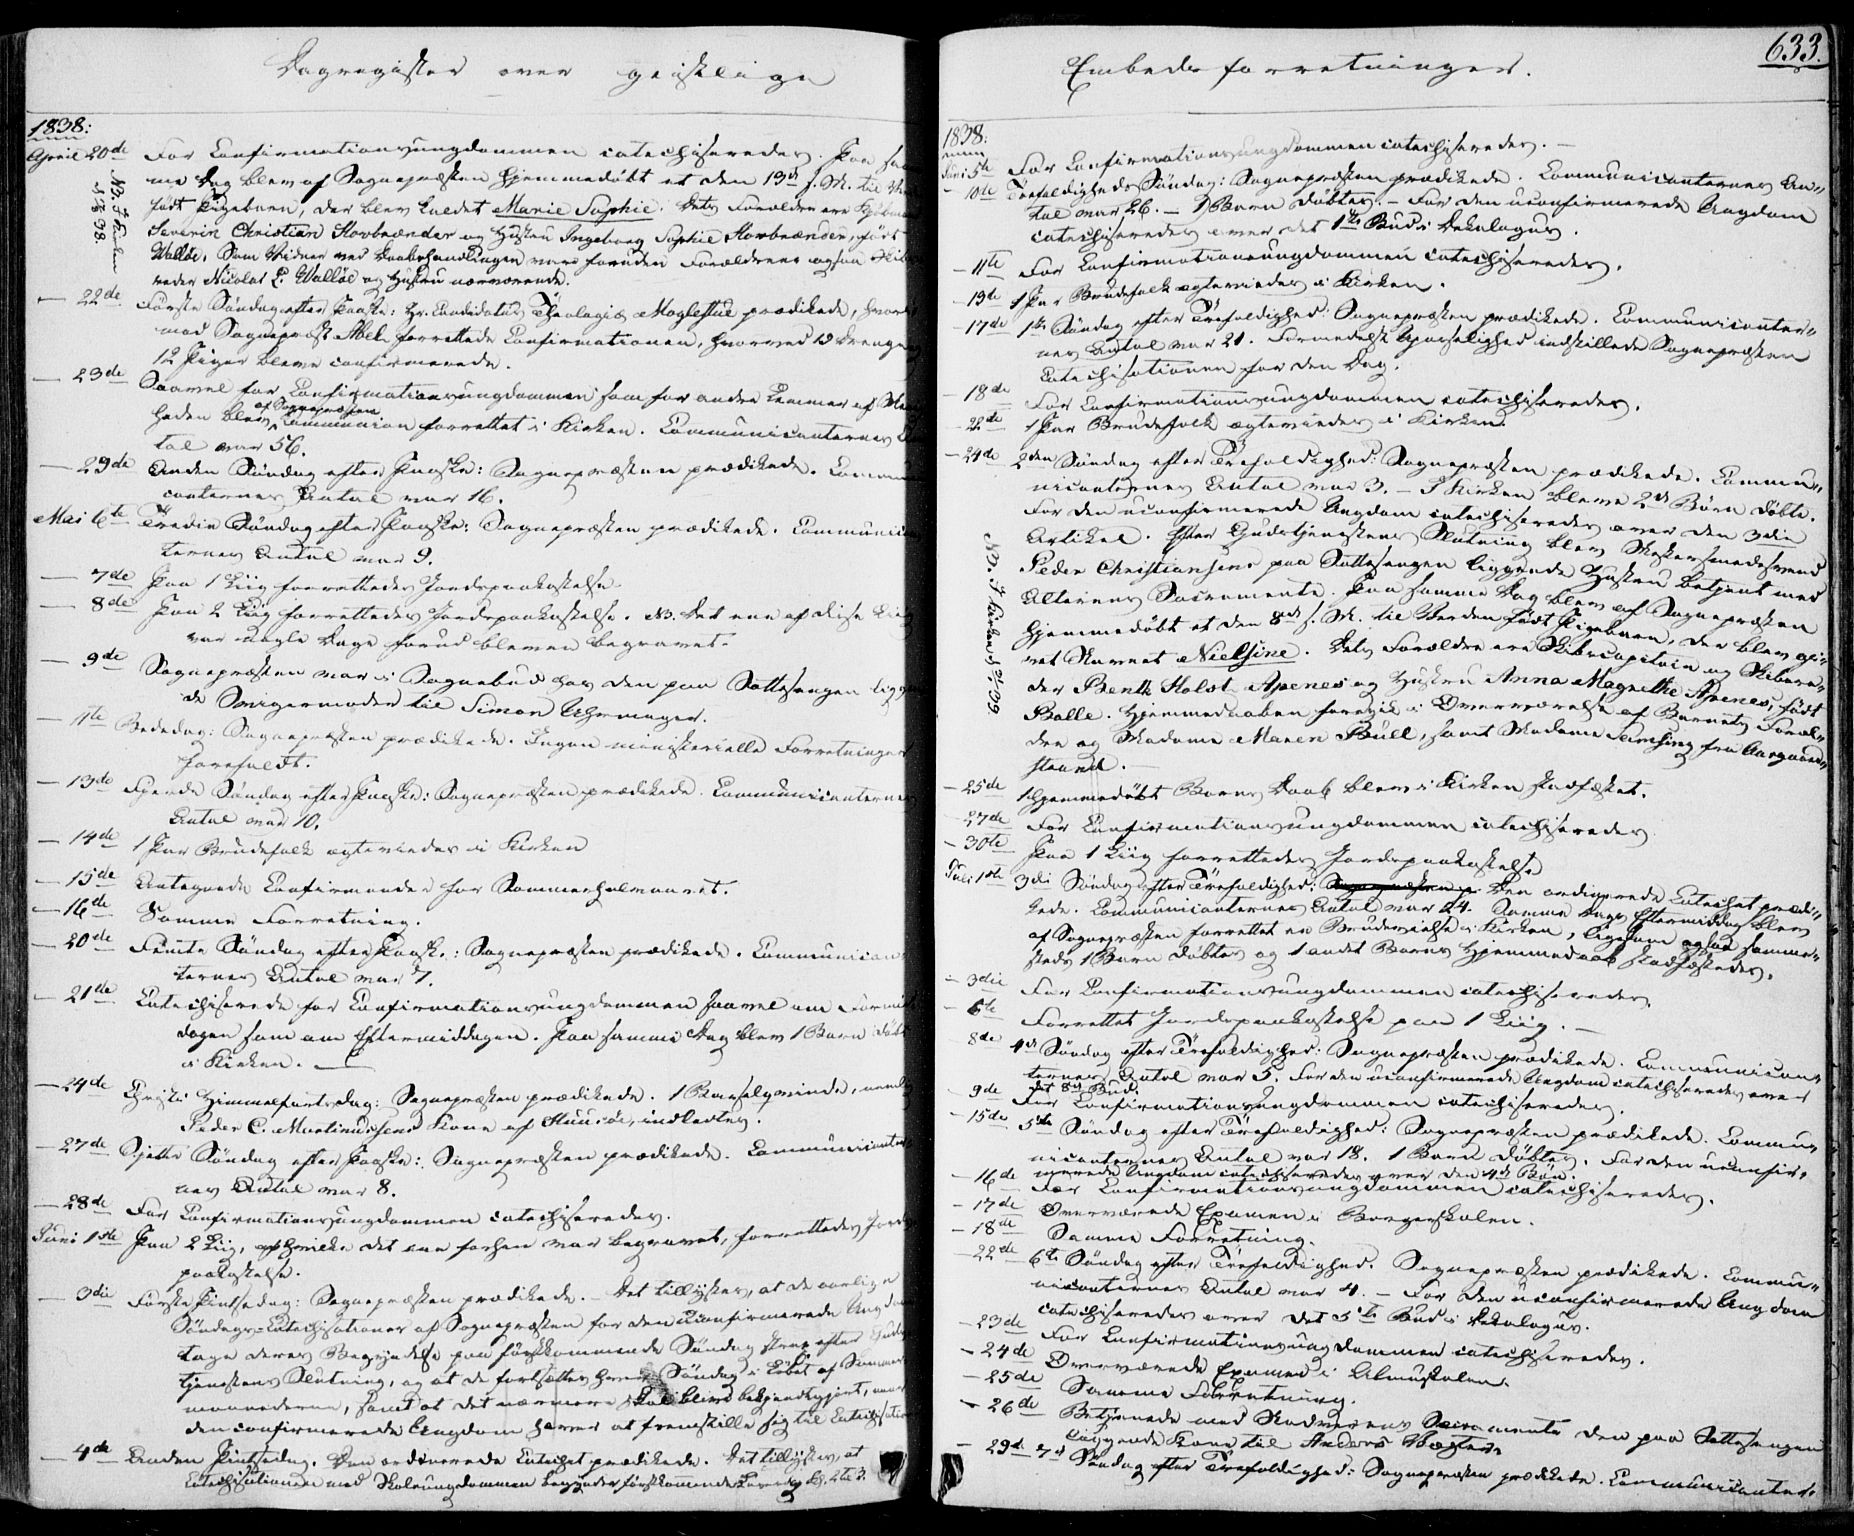 Dagregister over geistlige
1838:
April 20de For Confirmationsungdommen catechiseredes. Paa sam
me Dag blev af Sognepræsten hjemmedøbt et den 19de f. M. til
født Pigebarn, der blev kaldet Marie Sophie. Dets Forældre ere
Severin Christian Stovbrænder og Hustru Ingeborg Sophie Stovbrænder, født
Walløe. Som Vidner ved Daabshandlingen vare foruden Forældrene ogsaa
reder Nicolai C. Walløe og Hustru nærværende.
— 22de Første Søndag efter Paaske: Hr. Candidatus Theologiæ Moglestue prædikede, hvor
mod Sognepræst Abel forrettede Confirmationen, hvorved 19 Drenge og
12 Piger bleve confirmerede.
— 23de Saavel for Confirmationsungdommen som for andre Lemmer af Menig
heden blev af Sognepræsten Communion forrettet i Kirken. Communicanternes
tal var 56.
— 29de Anden Søndag efter Paaske: Sognepræsten prædikede. Communi
canternes Antal var 16.
Mai 6te Tredie Søndag efter Paaske: Sognepræsten prædikede. Communican
ternes Antal var 9.
— 7de Paa 1 Liig forrettedes Jordspaakastelse.
— 8de Paa 2 Liig forrettedes Jordspaakastelse. NB. Det ene af disse Liig
var nogle Dage forud bleven begravet.
— 9de Sognepræsten var i Sognebud hos den paa Sottesengen liggen
de Svigermoder til Simon Uhrmager.
— 11te Bededag: Sognepræsten prædikede. Ingen ministerielle Forretninger
forefaldt.
— 13de Fjerde Søndag efter Paaske: Sognepræsten prædikede. Communicanternes
Antal var 10.
— 14de 1 Par Brudefolk ægteviedes i Kirken
— 15de Antegnede Confirmander for Sommerhalvaaret.
— 16de Samme Forretning.
— 20de Femte Søndag efter Paaske: Sognepræsten prædikede. Communican
ternes Antal var 7.
— 21de Catechiserede for Confirmationsungdommen saavel om Formid
dagen som om Eftermiddagen. Paa samme Dag blev 1 Barn døbt
i Kirken. —
— 24de Christi Himmelfartsdag: Sognepræsten prædikede. 1 Barselqvinde, nemlig
Peder C. Martinussens Kone af, indledtes.
— 27de Sjette Søndag efter Paaske: Sognepræsten prædikede. Communicanter
nes Antal var 8.
— 28de For Confirmationsungdommen catechiseredes.
Juni 1ste Paa 2 Liig, af hvilke det ene forhen var begravet, forrettedes Jords
paakastelse.
— 3die Første Pintsedag: Sognepræsten prædikede. — Det tillystes, at de aarlige
Søndags-Catechisationer af Sognepræsten for den uconfirmerede Ungdom
tage deres Begyndelse paa førstkommende Søndag strax efter Guds
tjenestens Slutning, og at de fortsættes hver Søndag i Løbet af Sommer
maanederne, samt at det nærmere skal blive bekjendtgjort, naar
den confirmerede Ungdom haver at fremstille sig til Catechisation
— 4de Anden Pintsedag. Den ordinerede Catechet prædikede. Det tillystes, at
Catechisationen med Skoleungdommen begynder førstkommende
NB. I Kirken
d. 98.
Embedsforretninger.
633.
1838:
Juni 5te For Confirmationsungdommen catechiseredes. —
— 10de Trefoldigheds Søndag: Sognepræsten prædikede. Communicanternes An=
tal var 26. — 1 Barn døbtes. — For den uconfirmerede Ungdom
catechiseredes over det 1ste Bud i Dekalogus.
— 11te For Confirmationsungdommen catechiseredes.
— 13de 1 Par Brudefolk ægteviedes i Kirken.
— 17de 1ste Søndag efter Trefoldighed: Sognepræsten prædikede. Communicanter=
nes Antal var 21. Formedelst Upasselighed indstillede Sognepræsten
Catechisationen for den Dag.
— 18de For Confirmationsungdommen catechiseredes.
— 22de 1 Par Brudefolk ægteviedes i Kirken.
— 24de 2den Søndag efter Trefoldighed: Sognepræsten prædikede. Commu=
nicanternes Antal var 3. — I Kirken bleve 2de Børn døbte.
For den uconfirmerede Ungdom catechiseredes over den 3die
Artikel. Efter Gudstjenestens Slutning blev
Peder Christiansens paa Sottesengen liggende Hustru betjent med
Alterens Sacramente. Paa samme Dag blev af Sognepræsten
hjemmedøbt et den 8de f. M. til Verden født Pigebarn, der blev gi=
vet Navnet Nielsine. Dets Forældre ere Skibscapitain og Skibsre=
der Bent Holst Apenes og Hustru Anna Magrethe Apenes, født
Balle. Hjemmedaaben foregik i Overværelse af Barnets Foræl=
dre og Madame Maren Bull, samt Madame fra Aasgaard=
strand. —
— 25de 1 hjemmedøbt Barns Daab blev i Kirken stadfæstet.
— 27de For Confirmationsungdommen catechiseredes
— 30te Paa 1 Liig forrettedes Jordspaakastelse
Juli 1ste 3die Søndag efter Trefoldighed: Sognepræsten p Den ordinerede Catechet prædi=
kede. Communicanternes Antal var 24. Samme Dags Eftermiddag blev
af Sognepræsten forrettet en Brudevielse i Kirken, ligesom ogsaa samme=
steds 1 Barn døbtes og 1 andet Barns Hjemmedaab stadfæstedes.
— 3die For Confirmationsungdommen catechiseredes
— 6te Forrettet Jordspaakastelse paa 1 Liig. —
8de 4de Søndag efter Trefoldighed: Sognepræsten prædikede. Communican=
ternes Antal var 5. For den uconfirmerede Ungdom catechiseredes over
det 8de Bud.
— 9de For Confirmationsungdommen catechiseredes.
— 15de 5te Søndag efter Trefoldighed: Sognepræsten prædikede. Commu=
nicanternes Antal var 18. 1 Barn døbtes. For den uconfir=
merede Ungdom catechiseredes over den 4de Bøn.
— 16de For Confirmationsungdommen catechiseredes.
— 17de Overværede Examen i Borgerskolen.
— 18de Samme Forretning.
— 22de 6te Søndag efter Trefoldighed. Sognepræsten prædikede. Commu=
nicanternes Antal var 4. — For den uconfirmerede Ungdom
catechiseredes over det 5te Bud i Dekalogus.
— 23de For Confirmationsungdommen catechiseredes.
— 24de Overværede Examen i Almueskolen.
— 25de Samme Forretning.
— 26de Betjenede med Nadverens Sacramente den paa Sottesengen
liggende Kone til Anders
— 29de 7de Søndag efter Trefoldighed: Sognepræsten prædikede. Communicanter=
NB. I Kirken d. 39.